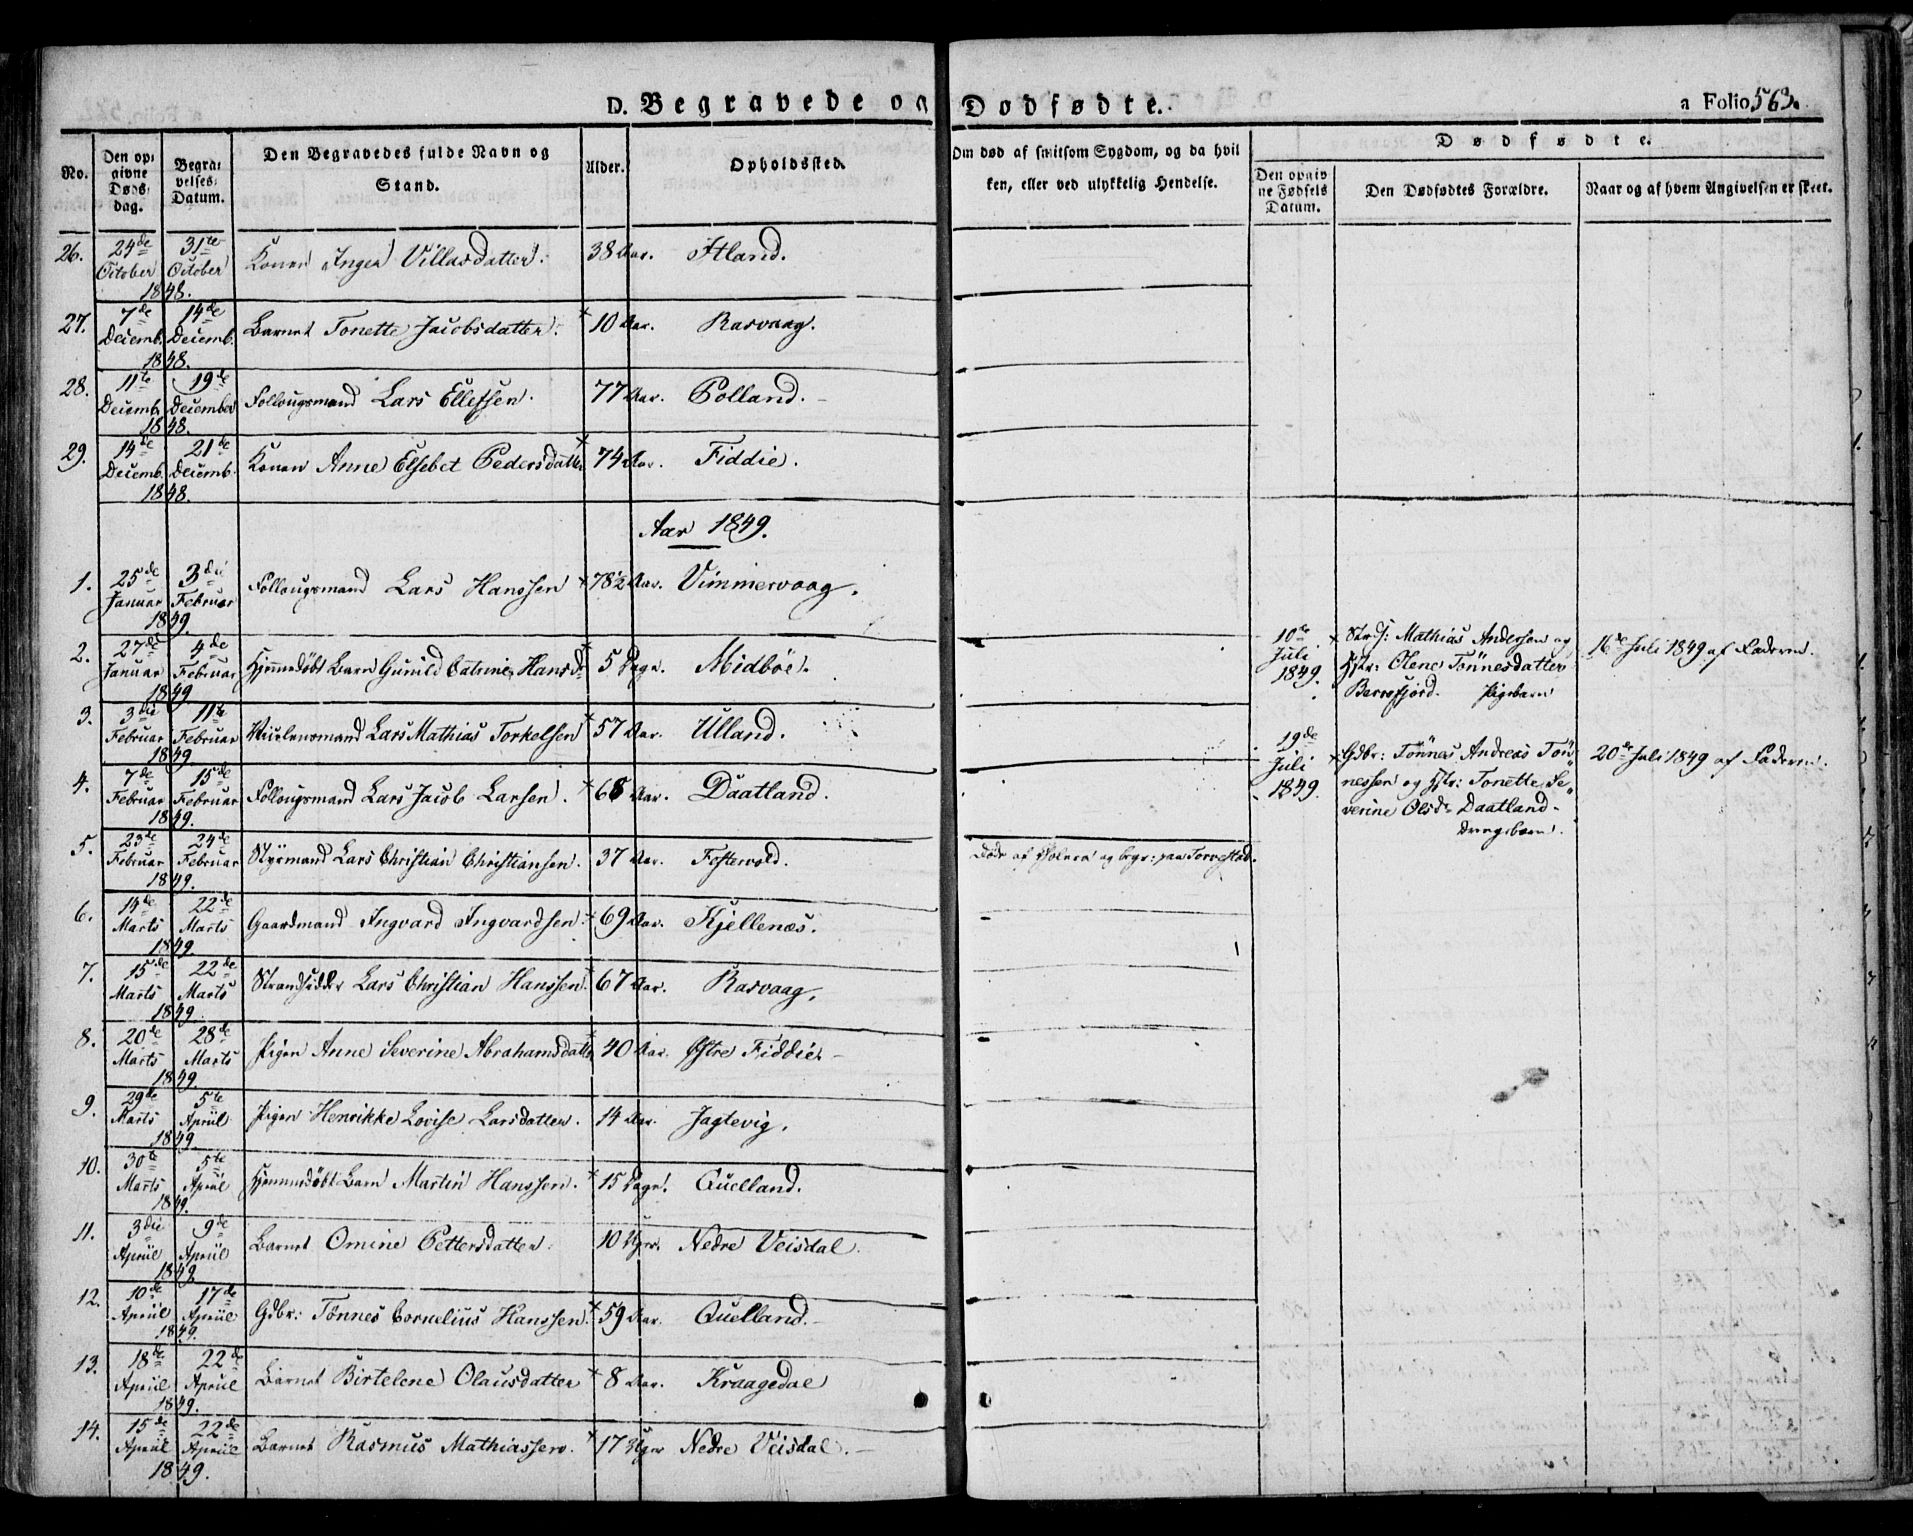 D. Begravede og Dødfødte.
a Folio 563.
No.
Den op-
givne
Døds-
dag.
Begra-
velses-
Datum.
Den Begravedes fulde Navn og
Stand.
Alder.
Opholdssted.
Om død af smitsom Sygdom, og da hvil
ken, eller ved ulykkelig Hendelse.
Dødfødte.
Den opgiv
ne Fødsels
Datum.
Den Dødfødtes Forældre.
Naar og af hvem Angivelsen er skeet.
26. 24de October 31te October 1848. Konen Inger Villasdatter. 38 Aar. Itland.
27. 7de Decemb. 14de Decemb. 1848. Barnet Tonette Jacobsdatter. 10 Aar. Rasvaag.
28. 11te Decemb. 19de December 1848. Follougsmand Lars Ellefsen. 77 Aar. Polland.
29. 14de Decemb. 21de Decemb. 1848. Konen Anne Elsebet Pedersdatter 74 Aar. Fiddie.
Aar 1849.
1. 25de Januar 3die Februar 1849. Follougsmand Lars Hanssen 78½ Aar. Vimmervaag.
2. 27de Januar 4de Februar 1849 Hjemmedøbt Barn Gunild Catrine Hansd. 5 Dage. Midböe.
3. 3die Februar 11te Februar 1849. Lars Mathias Torkelsen 57 Aar. Ulland.
4. 7de Februar 15de Februar 1849. Follougsmand Lars Jacob Larsen. 68 Aar. Daatland.
5. 23de Februar 24de Februar 1849. Styrmand Lars Christian Christiansen. 37 Aar. Festervold. Døde af Colera og begr: paa Torvestad.
6. 14de Marts 22de Marts 1849. Gaardmand Ingvard Ingvardsen. 69 Aar. Kjellenæs.
7. 15de Marts 22de Marts 1849. Strandsidder Lars Christian Hanssen. 67 Aar. Rasvaag.
8. 20de Marts 28de Marts 1849. Pigen Anne Severine Abrahamsdatt. 40 Aar. Østre Fiddie.
9. 29de Marts 5te April 1849. Pigen Henrikke Lovise Larsdatter. 14 Aar. Jagtevig.
10. 30te Marts 5te April 1849. Hjemmedøbt Barn Martin Hanssen. 15 Dage. Quelland.
11. 3die April 9de April 1849 Barnet Omine Pettersdatter. 10 Uger. Nedre Veisdal.
12. 10de April 17de April 1849. Gdbr: Tönnes Cornelius Hanssen. 59 Aar. Quelland.
13. 18de April 22de April 1849. Barnet Birtelene Olausdatter 8 Aar. Kraagedal
14. 15de April 22de April 1849. Barnet Rasmus Mathiassen. 17 Uger Nedre Veisdal.
10de Juli 1849. Mathias Andersen og
Hstr: Olene Tönnesdatter
Berrefjord. Pigebarn
16de Juli 1849 af Faderen.
19de Juli 1849. Gdbr: Tönnes Andreas Tön-
nessen og Hstr: Tonette Se-
verine Olsdr Daatland.
Drengebarn.
20de Juli 1849 af Faderen.